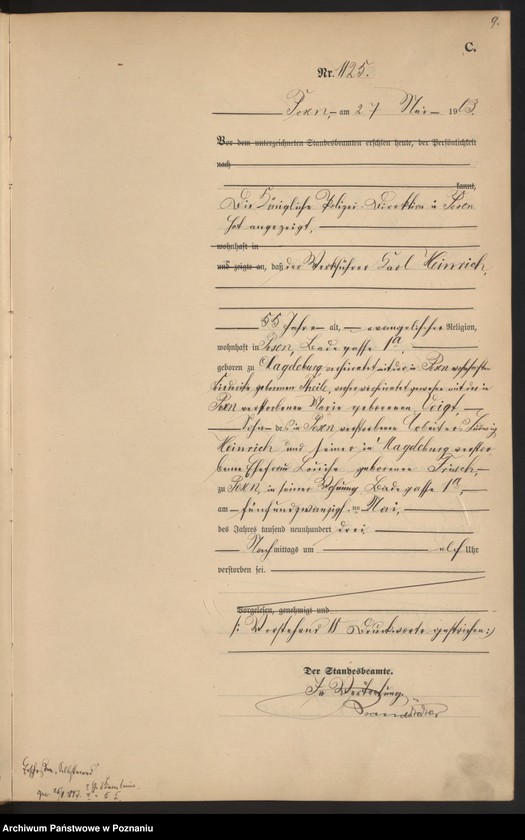 9.
C.
Nr. 1125.
Posen, am 27 Mai 1903.
Vor dem unterzeichneten Standesbeamten erschien heute, der Persönlichkeit
nach
kannt,
Die Königliche Polizei-Direktion in Posen
hat angezeigt,
wohnhaft in
und zeigte an, daß der Werkführer Carl Heinrich,
55 Jahre alt, evangelischer Religion,
wohnhaft in Posen, Badegasse 1a,
geboren zu Magdeburg verheiratet mit der in Posen wohnhaften
geborenen Theile, verheiratet gewesen mit der in
Posen verstorbenen Marie geborenen Voigt,
Sohn des in Posen verstorbenen Ludwig
Heinrich und seiner in Magdeburg verstor
benen Ehefrau Louise geborener Frisch,
zu Posen, in seiner Wohnung Badegasse 1a,
am fünfundzwanzigsten Mai,
des Jahres tausend neunhundert drei
Nachmittags um elf Uhr
verstorben sei.
Vorgelesen, genehmigt und
/: Vorstehend 11 Druckworte gestrichen :/
Der Standesbeamte.
In Vertretung.
Archiwum Państwowe w Poznaniu